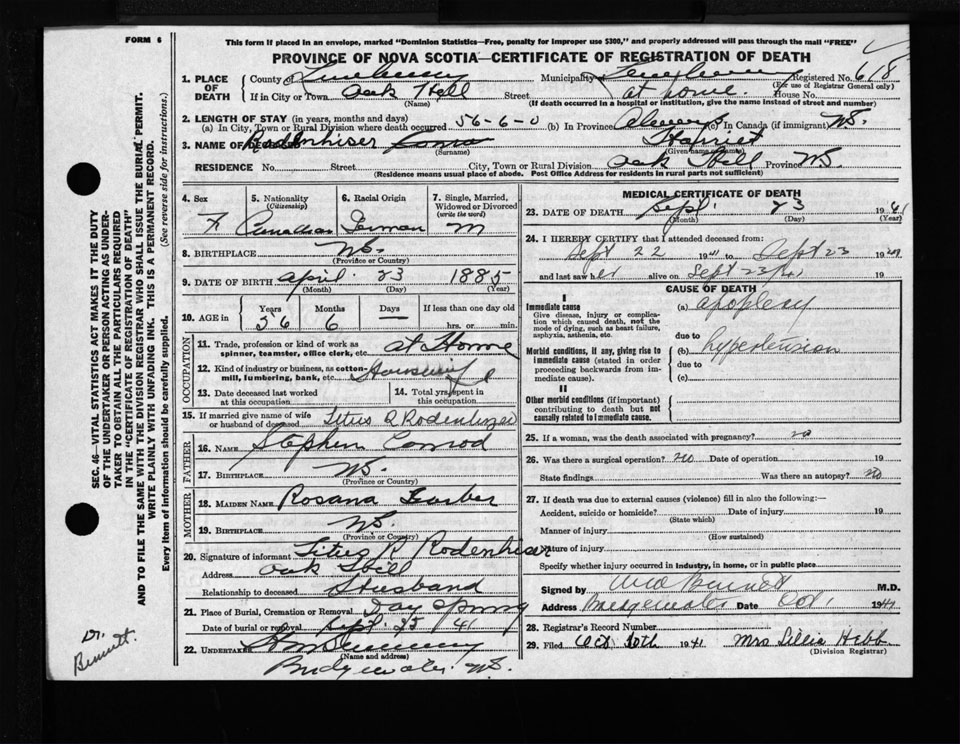 FORM 6
This form if placed in an envelope, marked "Dominion Statistics—Free, penalty for improper use $300," and properly addressed will pass through the mail "FREE"
PROVINCE OF NOVA SCOTIA—CERTIFICATE OF REGISTRATION OF DEATH
1. PLACE OF DEATH
County of Lunenburg Municipality Lunenburg Registered No. 618
(For use of Registrar General only)
If in City or Town Oak Hill Street at home. House No.
(Name) (If death occurred in a hospital or institution, give the name instead of street and number)
2. LENGTH OF STAY (in years, months and days)
(a) In City, Town or Rural Division where death occurred 56-6-0 (b) In Province Always (c) In Canada (if immigrant) N.S.
3. NAME OF DECEASED Rodenhiser Harriet
(Surname) (Given name or names)
RESIDENCE No. Street City, Town or Rural Division Oak Hill Province N.S.
(Residence means usual place of abode. Post Office Address for residents in rural parts not sufficient)
4. Sex
F
5. Nationality
(Citizenship)
Canadian
6. Racial Origin
German
7. Single, Married, Widowed or Divorced
(write the word)
M
8. BIRTHPLACE N.S.
(Province or Country)
9. DATE OF BIRTH April 23 1885
(Month) (Day) (Year)
10. AGE in Years Months Days If less than one day old
56 6 — hrs. or min.
OCCUPATION
11. Trade, profession or kind of work as spinner, teamster, office clerk, etc. at Home
12. Kind of industry or business, as cotton-mill, lumbering, bank, etc. Housewife
13. Date deceased last worked at this occupation
14. Total yrs. spent in this occupation
15. If married give name of wife or husband of deceased Titus R Rodenhizer
FATHER
16. NAME Stephen Conrod
17. BIRTHPLACE N.S.
(Province or Country)
MOTHER
18. MAIDEN NAME Rosana
19. BIRTHPLACE N.S.
(Province or Country)
20. Signature of informant Titus R Rodenhiser
Address Oak Hill
Relationship to deceased Husband
21. Place of Burial, Cremation or Removal Day Spring
Date of burial or removal Sept 25 41
22. UNDERTAKER
(Name and address)
Bridgewater N.S.
MEDICAL CERTIFICATE OF DEATH
23. DATE OF DEATH Sept. 23 1941
(Month) (Day) (Year)
24. I HEREBY CERTIFY that I attended deceased from:
Sept 22 1941 to Sept 23 1941
and last saw her alive on Sept 23 19
CAUSE OF DEATH
I
Immediate cause
Give disease, injury or complication which caused death, not the mode of dying, such as heart failure, asphyxia, asthenia, etc.
(a) apoplexy
due to
Morbid conditions, if any, giving rise to immediate cause (stated in order proceeding backwards from immediate cause).
(b) hypertension
due to
(c)
II
Other morbid conditions (if important) contributing to death but not causally related to immediate cause.
25. If a woman, was the death associated with pregnancy? no
26. Was there a surgical operation? no Date of operation 19
State findings Was there an autopsy? no
27. If death was due to external causes (violence) fill in also the following:—
Accident, suicide or homicide? Date of injury 19
(State which)
Manner of injury
(How sustained)
Nature of injury
Specify whether injury occurred in industry, in home, or in public place
Signed by Bennett M.D.
Address Bridgewater Date Oct 1 1941
28. Registrar's Record Number
29. Filed Oct 10th 1941 Mrs Lillia Hebb
(Division Registrar)
SEC. 46—VITAL STATISTICS ACT MAKES IT THE DUTY
OF THE UNDERTAKER OR PERSON ACTING AS UNDER-
TAKER TO OBTAIN ALL THE PARTICULARS REQUIRED
IN THE "CERTIFICATE OF REGISTRATION OF DEATH"
AND TO FILE THE SAME WITH THE DIVISION REGISTRAR WHO SHALL ISSUE THE BURIAL PERMIT.
WRITE PLAINLY WITH UNFADING INK. THIS IS A PERMANENT RECORD.
Every item of information should be carefully supplied. (See reverse side for instructions.)
Dr. Bennett.